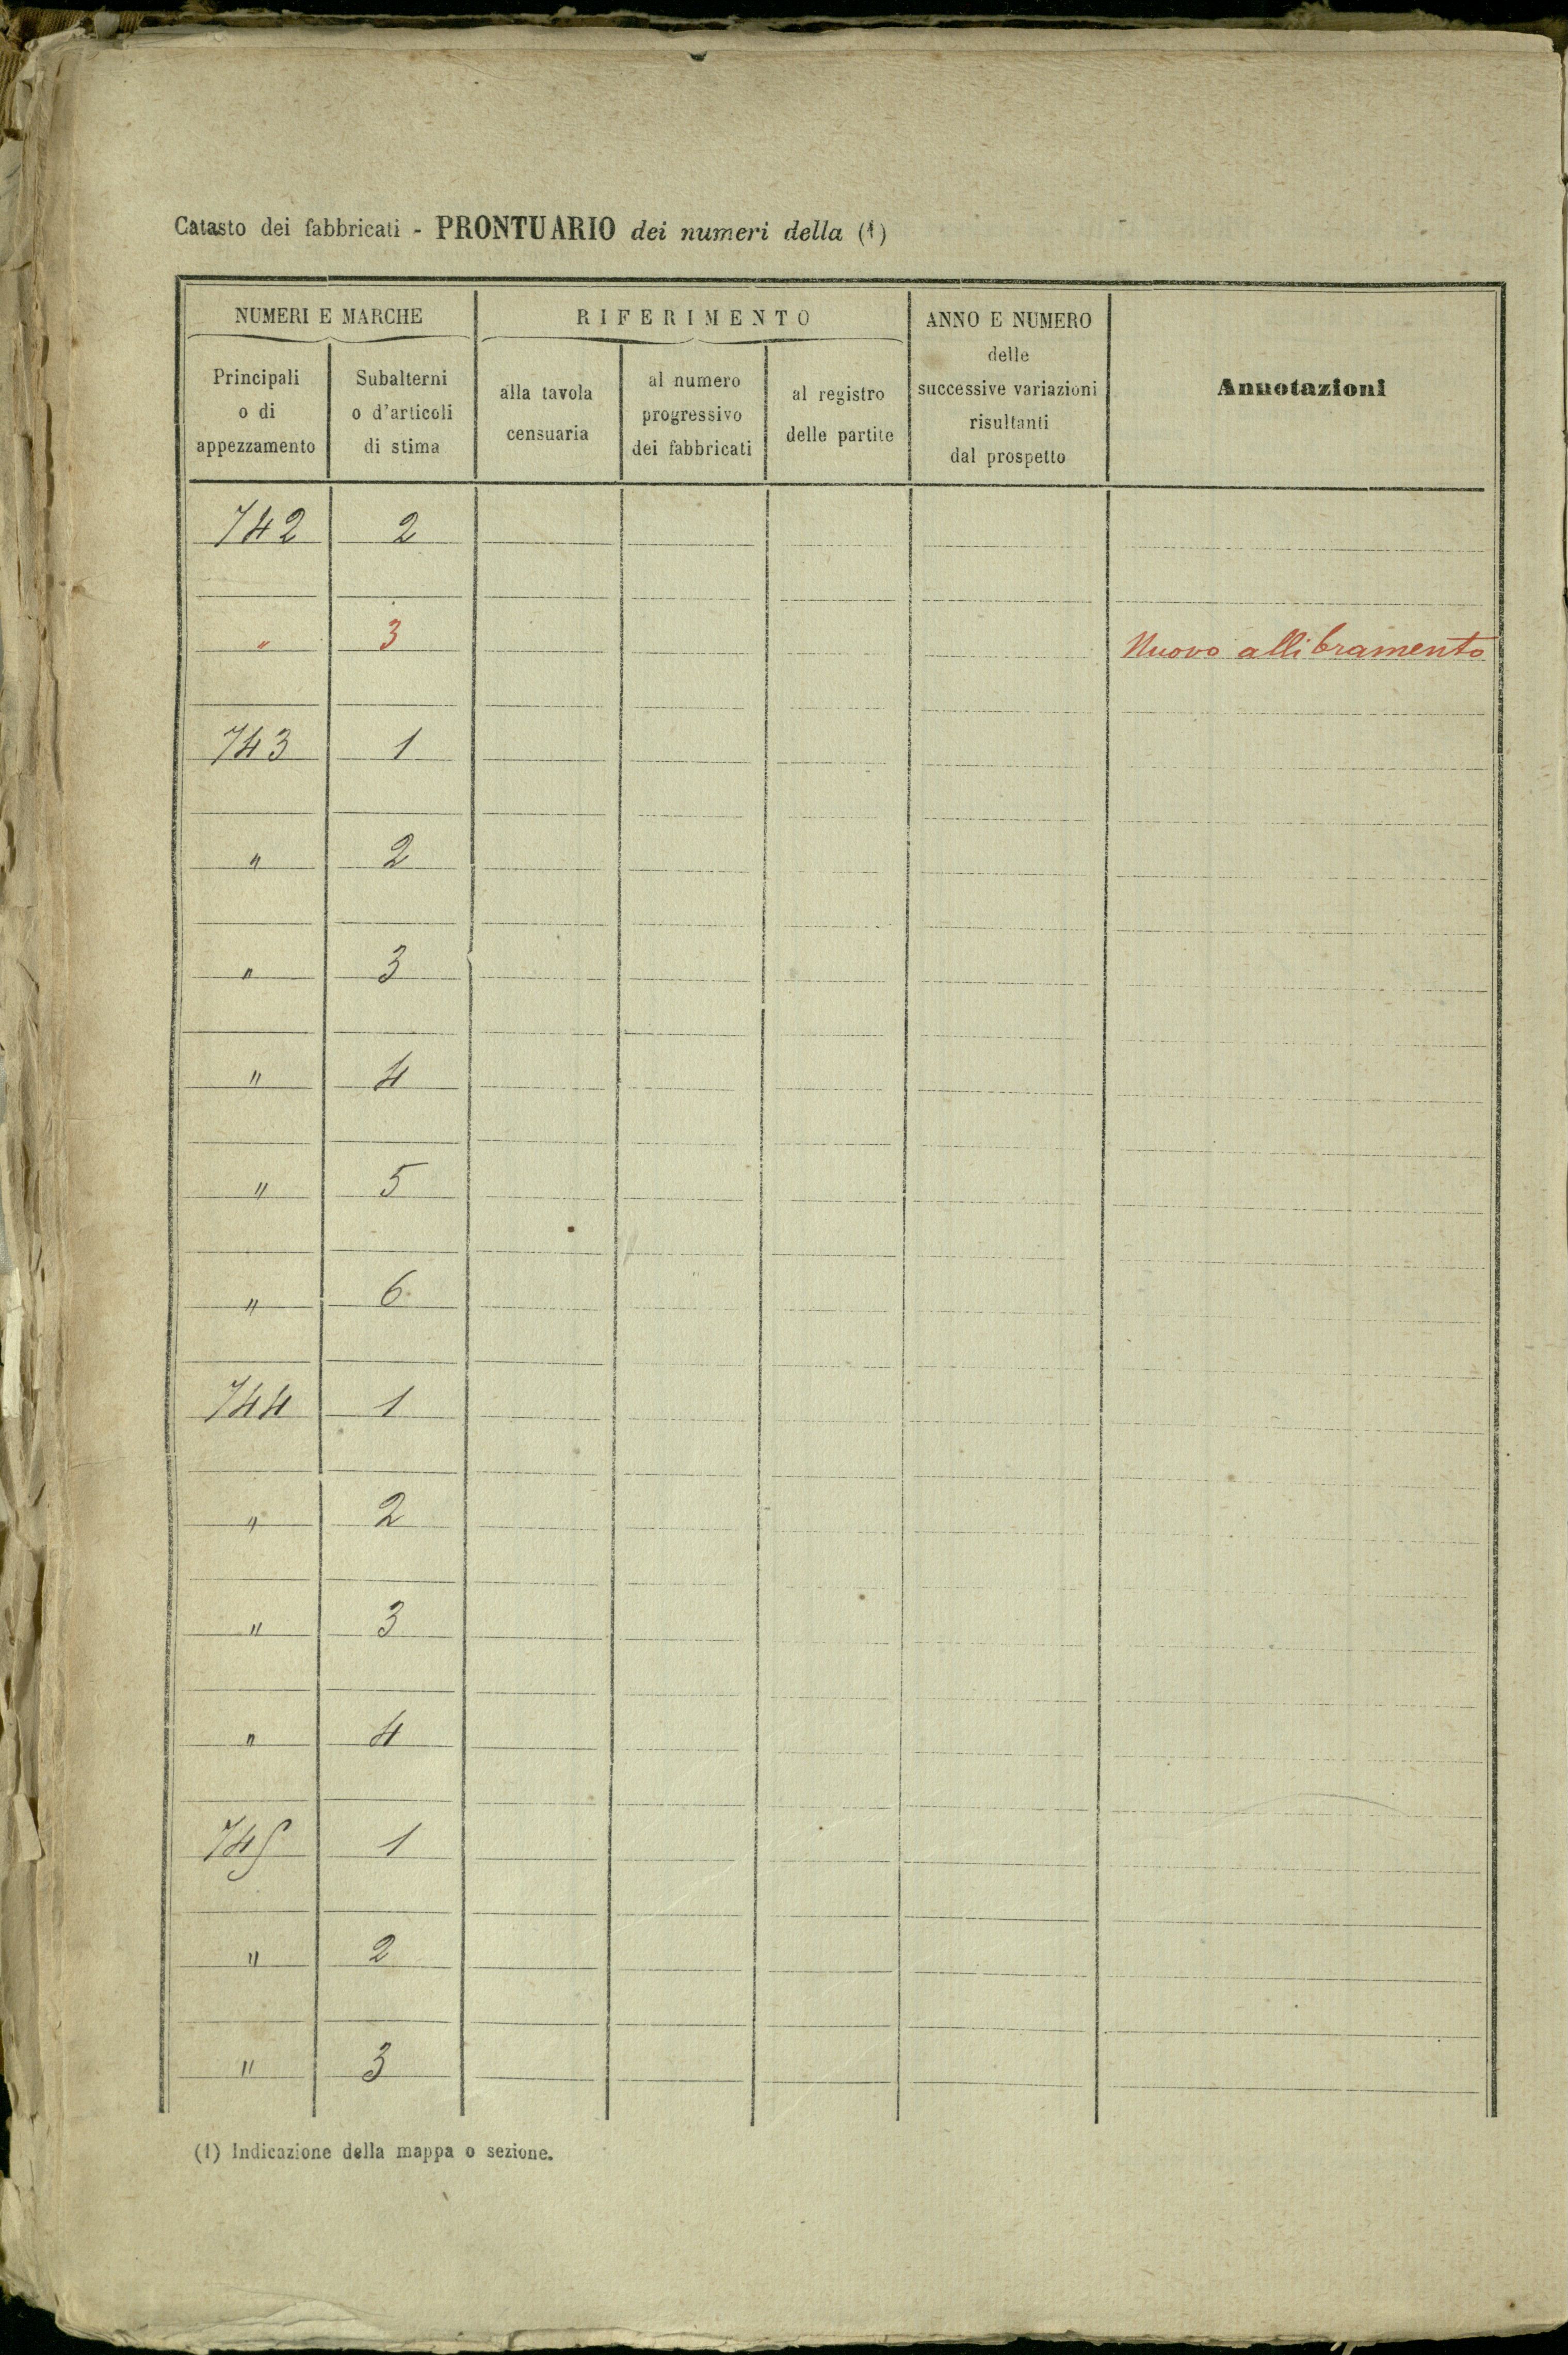 Catasto dei fabbricati - PRONTUARIO dei numeri della (1)
NUMERI E MARCHE
RIFERIMENTO
ANNO E NUMERO
delle
successive variazioni
risultanti
dal prospetto
Annotazioni
Principali
o di
appezzamento
Subalterni
o d'articoli
di stima
alla tavola
censuaria
al numero
progressivo
dei fabbricati
al registro
delle partite
742 2
" 3 Nuovo allibramento
743 1
" 2
" 3
" 4
" 5
" 6
744 1
" 2
" 3
" 4
745 1
" 2
" 3
(1) Indicazione della mappa o sezione.